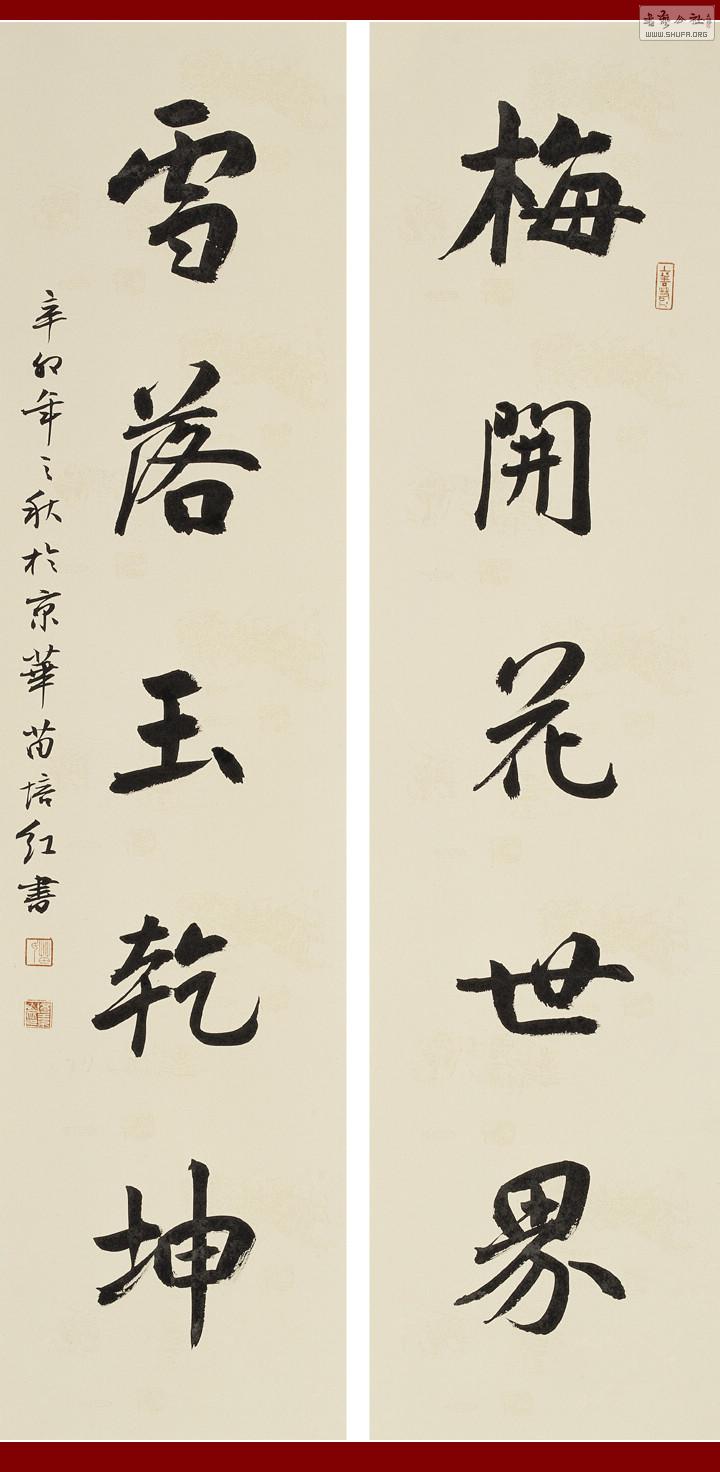 梅開花世界
雪落玉乾坤
辛卯年之秋於京華苗培红書
WWW.SHUFA.ORG